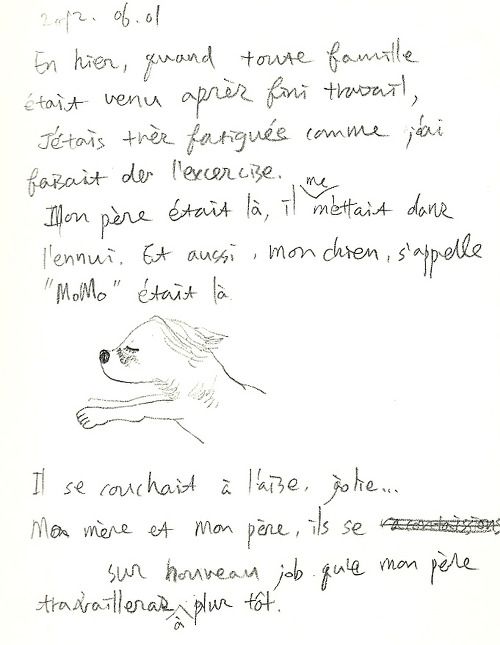 2012. 06.01
En hier, quand toute famille
était venu après fini travail,
J'étais très fatiguée comme j'ai
faisait des l'excercise.
Mon père était là, il me mettait dans
l'ennui. Et aussi, mon chien, s'appelle
"MoMo" était là
Il se couchait à l'aise, jolie...
Mon mère et mon père, ils se
sur nouveau job que mon père
travaillerai à plus tôt.